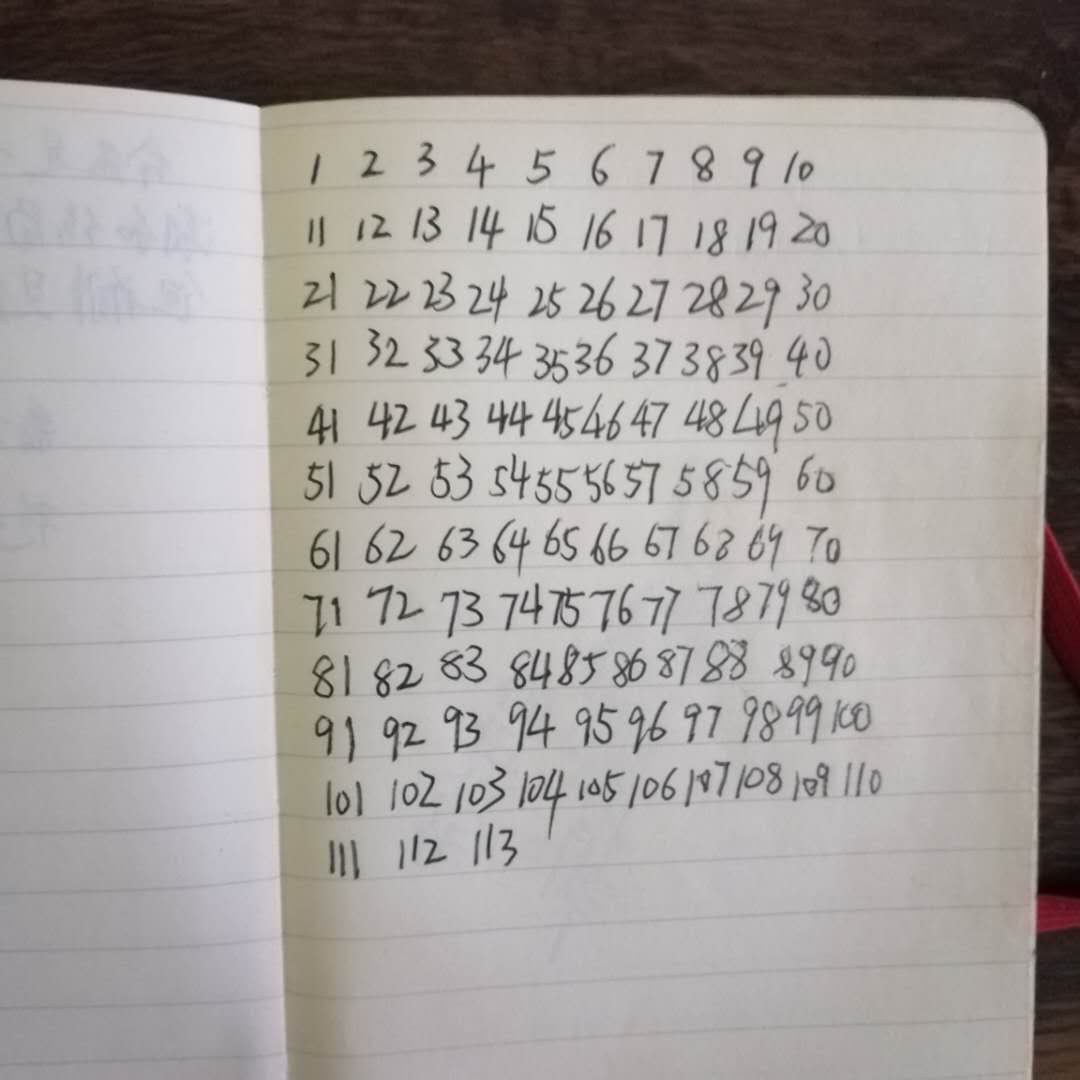 1 2 3 4 5 6 7 8 9 10
11 12 13 14 15 16 17 18 19 20
21 22 23 24 25 26 27 28 29 30
31 32 33 34 35 36 37 38 39 40
41 42 43 44 45 46 47 48 49 50
51 52 53 54 55 56 57 58 59 60
61 62 63 64 65 66 67 68 69 70
71 72 73 74 75 76 77 78 79 80
81 82 83 84 85 86 87 88 89 90
91 92 93 94 95 96 97 98 99 100
101 102 103 104 105 106 107 108 109 110
111 112 113